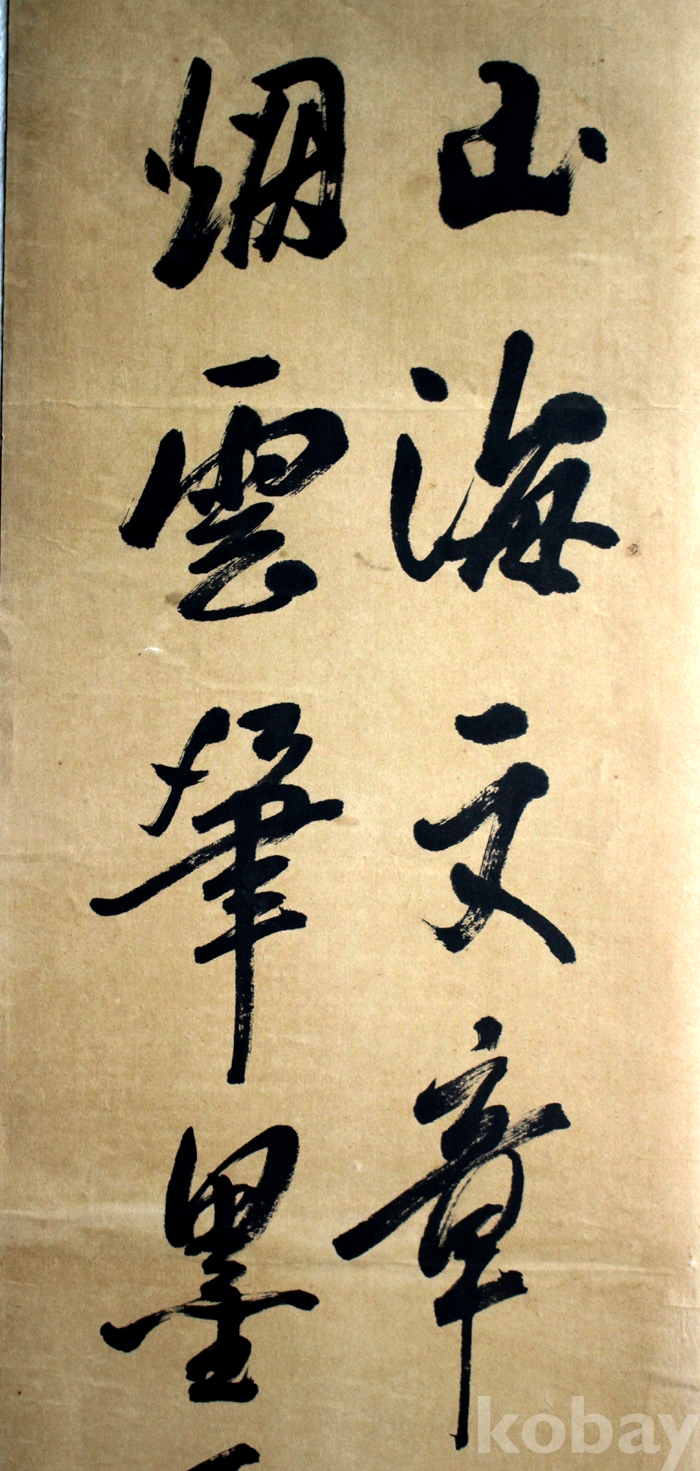 山海文章
烟雲筆墨
kobay